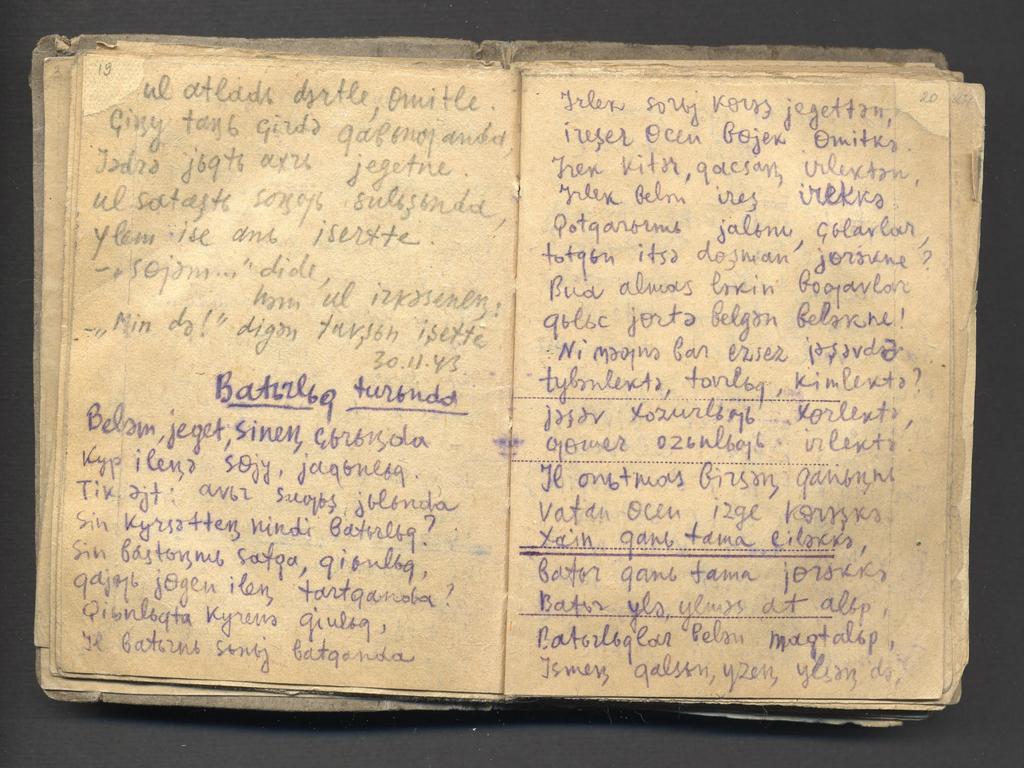 19
ul atladь dərtle, ɵmitle.
Çiŋy taŋь çirdə qaвьnоƣanda,
Jədrə jьqtь axrь jegetne.
ul sataştь soŋƣь sulьşьnda,
ylem ise anь isertte.
–„Sɵjəm..." dide,
həm ul irkəseneŋ:
–„Min də!" digən tavşьn işette
30.11.43
Batьrlьq turьnda
Beləm, jeget, sineŋ çьrьŋda
Kyp ileŋə sɵjy, jaqьnlьq.
Tik əjt: avьr suƣьş jьlьnda
Sin kyrsətteŋ nindi batьrlьq?
Sin baştьŋmь satqa, qiьnlьq,
qajƣь jɵgen ileŋ tartqanda?
Qiьnlьqta kyrenə qiulьq,
Il batьrnь sьnьj batqanda
20
Irlek sorьj kɵrəş jegettən,
ireşer ɵcen bɵjek ɵmitkə.
Irek kitər, qacsaŋ irlektən,
Irlek belən ireş irekkə
Qotqarьrmь jalьnu, çьlavlar,
totqьn itsə doşman jɵrəkne?
Bua almas ləkin boƣavlar
qьlьc jɵrtə belgən beləkne!
Ni məƣnə bar ersez jəşəvdə
tybənlektə, tovrlьq, kimlektə?
jəşəv xozurlьƣь xɵrlektə
ƣɵmer ozьnlьƣь irlektə
Il onьtmas birsəŋ qanьŋnь
Vatan ɵcen izge kɵrəşkə
Xain qanь tama ciləkkə,
batьr qanь tama jɵrəkkə
Batьr ylə, ylməs at alьp,
Batьrlьqlar belən maqtalьp,
Ismeŋ qalsьn, yzeŋ ylsəŋ də,